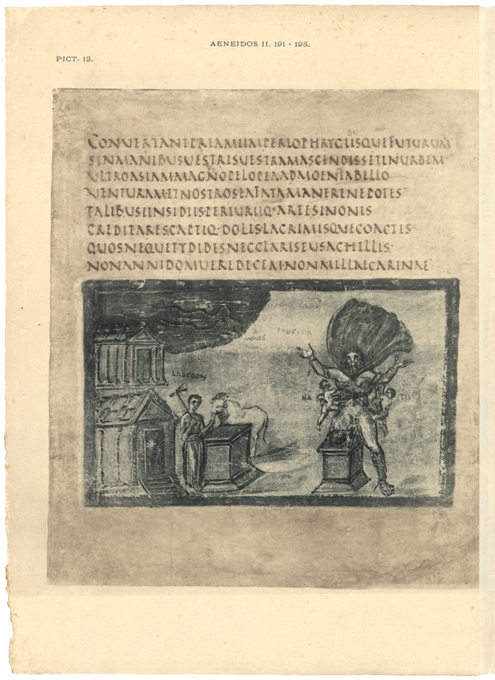 AENEIDOS II. 191 - 198.
PICT. 13.
CONVERTANTPRIAMIIMPERIOPHRYGIBUSQUEFUTURUM
SINMANIBUSVESTRISVESTRAMASCENDISSETINURBEM
ULTROASIAMMAGNOPELOPEAADMOENIABELLO
VENTURAMETNOSTROSEAFATAMANERENEPOTES
TALIBUSINSIDIISPERIURIQ·ARTESINONIS
CREDITARESCAPTIQ·DOLISLACRIMISQUECOACTIS
QUOSNEQUETYDIDESNECLARISEUSACHILLIS·
NONANNIDOMUEREDECEMNONMILLECARINAE
LAOCOON
LAOCOON
NA TI